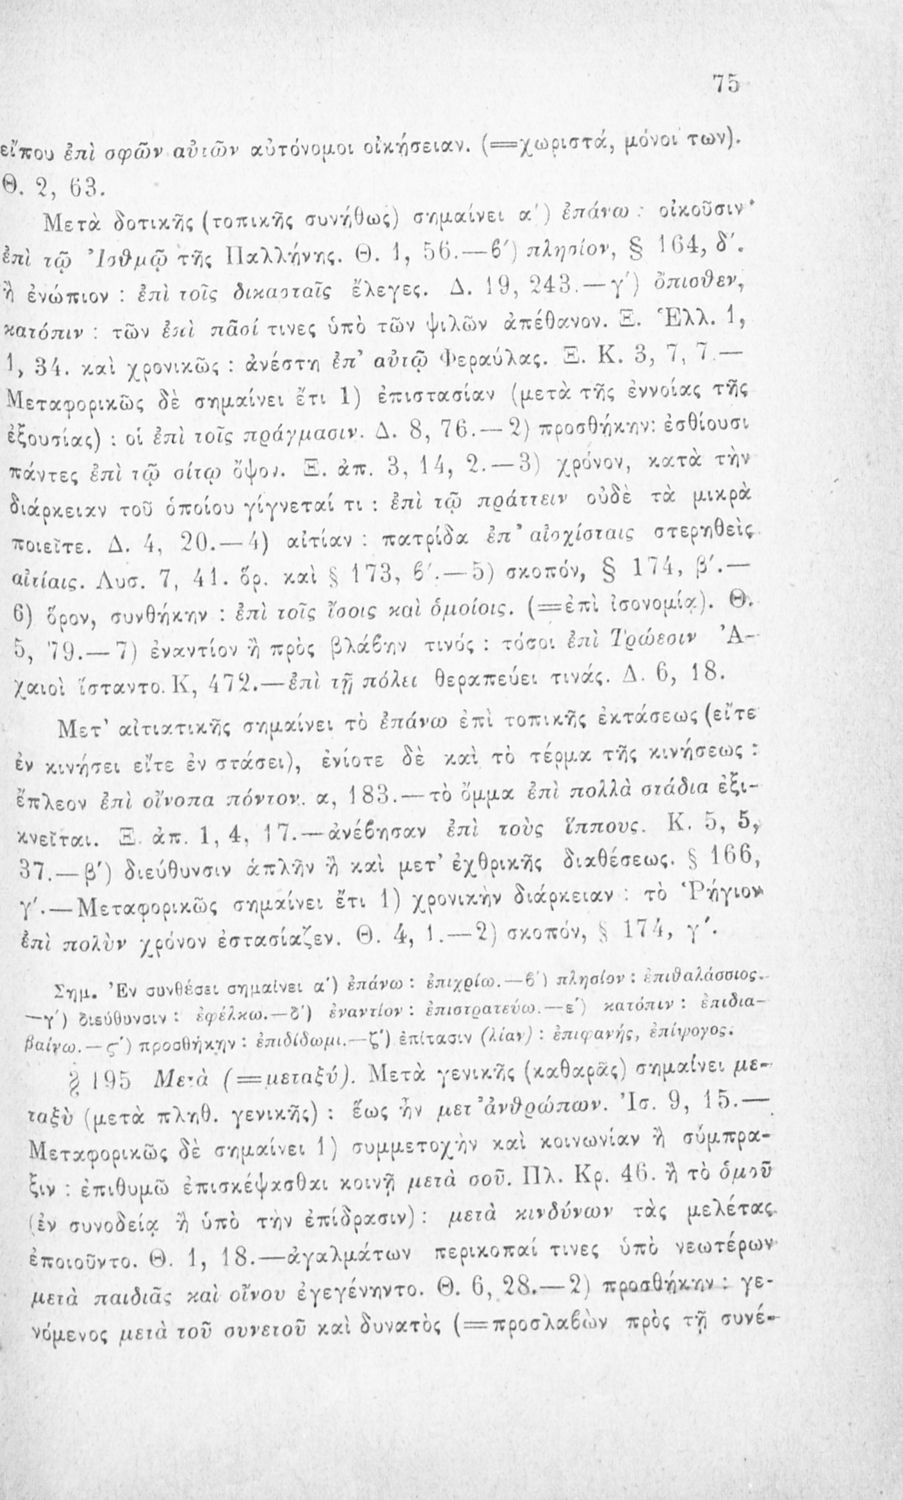 75
εἴπου ἐπὶ σφῶν αὐτῶν αὐτόνομοι οἰκήσειαν. (=χωριστά, μόνοι των).
Θ. 2, 63.
Μετὰ δοτικῆς (τοπικῆς συνήθως) σημαίνει α΄) ἐπάνω : οἰκοῦσιν
ἐπὶ τῷ Ἰσθμῷ τῆς Παλλήνης. Θ. 1, 56.—β΄) πλησίον, § 164, δ΄.
ἢ ἐνώπιον : ἐπὶ τοῖς δικασταῖς ἔλεγες. Δ. 19, 243.—γ΄) ὄπισθεν,
κατόπιν : τῶν ἐπὶ πᾶσί τινες ὑπὸ τῶν ψιλῶν ἀπέθανον. Ξ. Ἑλλ. 1,
1, 34. καὶ χρονικῶς : ἀνέστη ἐπ' αὐτῷ Φεραύλας. Ξ. Κ. 3, 7, 7.—
Μεταφορικῶς δὲ σημαίνει ἔτι 1) ἐπιστασίαν (μετὰ τῆς ἐννοίας τῆς
ἐξουσίας) : οἱ ἐπὶ τοῖς πράγμασιν. Δ. 8, 76.—2) προσθήκην: ἐσθίουσι
πάντες ἐπὶ τῷ σίτῳ ὄψον. Ξ. ἀπ. 3, 14, 2.—3) χρόνον, κατὰ τὴν
διάρκειαν τοῦ ὁποίου γίγνεταί τι : ἐπὶ τῷ πράττειν οὐδὲ τὰ μικρὰ
ποιεῖτε. Δ. 4, 20.—4) αἰτίαν : πατρίδα ἐπ' αἰσχίσταις στερηθεὶς
αἰτίαις. Λυσ. 7, 41. ὅρ. καὶ § 173, β΄.—5) σκοπόν, § 174, β΄.—
6) ὅρον, συνθήκην : ἐπὶ τοῖς ἴσοις καὶ ὁμοίοις. (=ἐπὶ ἰσονομίᾳ). Θ.
5, 79.—7) ἐναντίον ἢ πρὸς βλάβην τινός : τόσοι ἐπὶ Τρώεσιν Ἀ-
χαιοὶ ἵσταντο. Κ, 472.—ἐπὶ τῇ πόλει θεραπεύει τινάς. Δ. 6, 18.
Μετ' αἰτιατικῆς σημαίνει τὸ ἐπάνω ἐπὶ τοπικῆς ἐκτάσεως (εἴτε
ἐν κινήσει εἴτε ἐν στάσει), ἐνίοτε δὲ καὶ τὸ τέρμα τῆς κινήσεως :
ἔπλεον ἐπὶ οἴνοπα πόντον. α, 183.—τὸ ὄμμα ἐπὶ πολλὰ στάδια ἐξι-
κνεῖται. Ξ. ἀπ. 1, 4, 17.—ἀνέβησαν ἐπὶ τοὺς ἵππους. Κ. 5, 5,
37.—β΄) διεύθυνσιν ἁπλῆν ἢ καὶ μετ' ἐχθρικῆς διαθέσεως. § 166,
γ΄.—Μεταφορικῶς σημαίνει ἔτι 1) χρονικὴν διάρκειαν : τὸ Ῥήγιον
ἐπὶ πολὺν χρόνον ἐστασίαζεν. Θ. 4, 1.—2) σκοπόν, § 174, γ΄.
Σημ. Ἐν συνθέσει σημαίνει α΄) ἐπάνω : ἐπιχρίω.—β΄) πλησίον : ἐπιθαλάσσιος.
—γ΄) διεύθυνσιν : ἐφέλκω.—δ΄) ἐναντίον : ἐπιστρατεύω.—ε΄) κατόπιν : ἐπιδια-
βαίνω.—ϛ΄) προσθήκην : ἐπιδίδωμι.—ζ΄) ἐπίτασιν (λίαν) : ἐπιφανής, ἐπίψογος.
§ 195 Μετὰ (=μεταξύ). Μετὰ γενικῆς (καθαρᾶς) σημαίνει με-
ταξὺ (μετὰ πληθ. γενικῆς) : ἕως ἦν μετ' ἀνθρώπων. Ἰσ. 9, 15.—
Μεταφορικῶς δὲ σημαίνει 1) συμμετοχὴν καὶ κοινωνίαν ἢ σύμπρα-
ξιν : ἐπιθυμῶ ἐπισκέψασθαι κοινῇ μετὰ σοῦ. Πλ. Κρ. 46. ἢ τὸ ὁμοῦ
(ἐν συνοδείᾳ ἢ ὑπὸ τὴν ἐπίδρασιν) : μετὰ κινδύνων τὰς μελέτας
ἐποιοῦντο. Θ. 1, 18.—ἀγαλμάτων περικοπαί τινες ὑπὸ νεωτέρων
μετὰ παιδιᾶς καὶ οἴνου ἐγεγένηντο. Θ. 6, 28.—2) προσθήκην : γε-
νόμενος μετὰ τοῦ συνετοῦ καὶ δυνατὸς (=προσλαβὼν πρὸς τῇ συνέ-